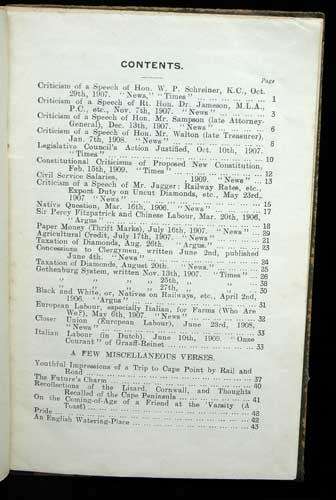 CONTENTS.
Page
Criticism of a Speech of Hon. W. P. Schreiner, K.C., Oct.
29th, 1907. "News," "Times" ... 1
Criticism of a Speech of Rt. Hon. Dr. Jameson, M.L.A.,
P.C., etc., Nov. 7th, 1907. "News" ... 3
Criticism of a Speech of Hon. Mr. Sampson (late Attorney-
General), Dec. 13th, 1907 "News" ... 6
Criticism of a Speech of Hon. Mr. Walton (late Treasurer),
Jan. 7th, 1908. "News" ... 8
Legislative Council's Action Justified, Oct. 10th, 1907.
"Times" ... 10
Constitutional Criticisms of Proposed New Constitution,
Feb. 15th, 1909. "Times" ... 12
Civil Service Salaries, 1909. "News" ... 13
Criticism of a Speech of Mr. Jagger: Railway Rates, etc.,
Export Duty on Uncut Diamonds, etc., May 23rd,
1907 "News" ... 15
Native Question, Mar. 16th, 1906. "News" ... 17
Sir Percy Fitzpatrick and Chinese Labour, Mar. 20th, 1906,
"Argus" ... 18
Paper Money (Thrift Marks), July 16th, 1907. "News" ... 20
Agricultural Credit, July 17th, 1907. "News" ... 21
Taxation of Diamonds, Aug. 26th. "Argus" ... 23
Concessions to Clergymen, written June 2nd, published
June 4th. "News" ... 24
Taxation of Diamonds, August 20th. "News" ... 25
Gothenburg System, written Nov. 13th, 1907. "Times" ... 26
" " " 25th, " ...
" " " 27th, " ...
Black and White, or, Natives on Railways, etc., April 2nd,
1906. "Argus" ... 31
European Labour, especially Italian, for Farms (Who Are
We?), May 6th, 1907. "News" ... 32
Closer Union (European Labour), June 23rd, 1908,
"News" ... 33
Italian Labour (in Dutch), June 10th, 1909. "Onze
Courant" of Graaff-Reinet ... 33
A FEW MISCELLANEOUS VERSES.
Youthful Impressions of a Trip to Cape Point by Rail and
Road ... 37
The Future's Charm ... 40
Recollections of the Lizard, Cornwall, and Thoughts
Recalled of the Cape Peninsula ... 41
On the Coming-of-Age of a Friend at the 'Varsity (A
Toast) ...
Pride ... 42
An English Watering-Place ... 43